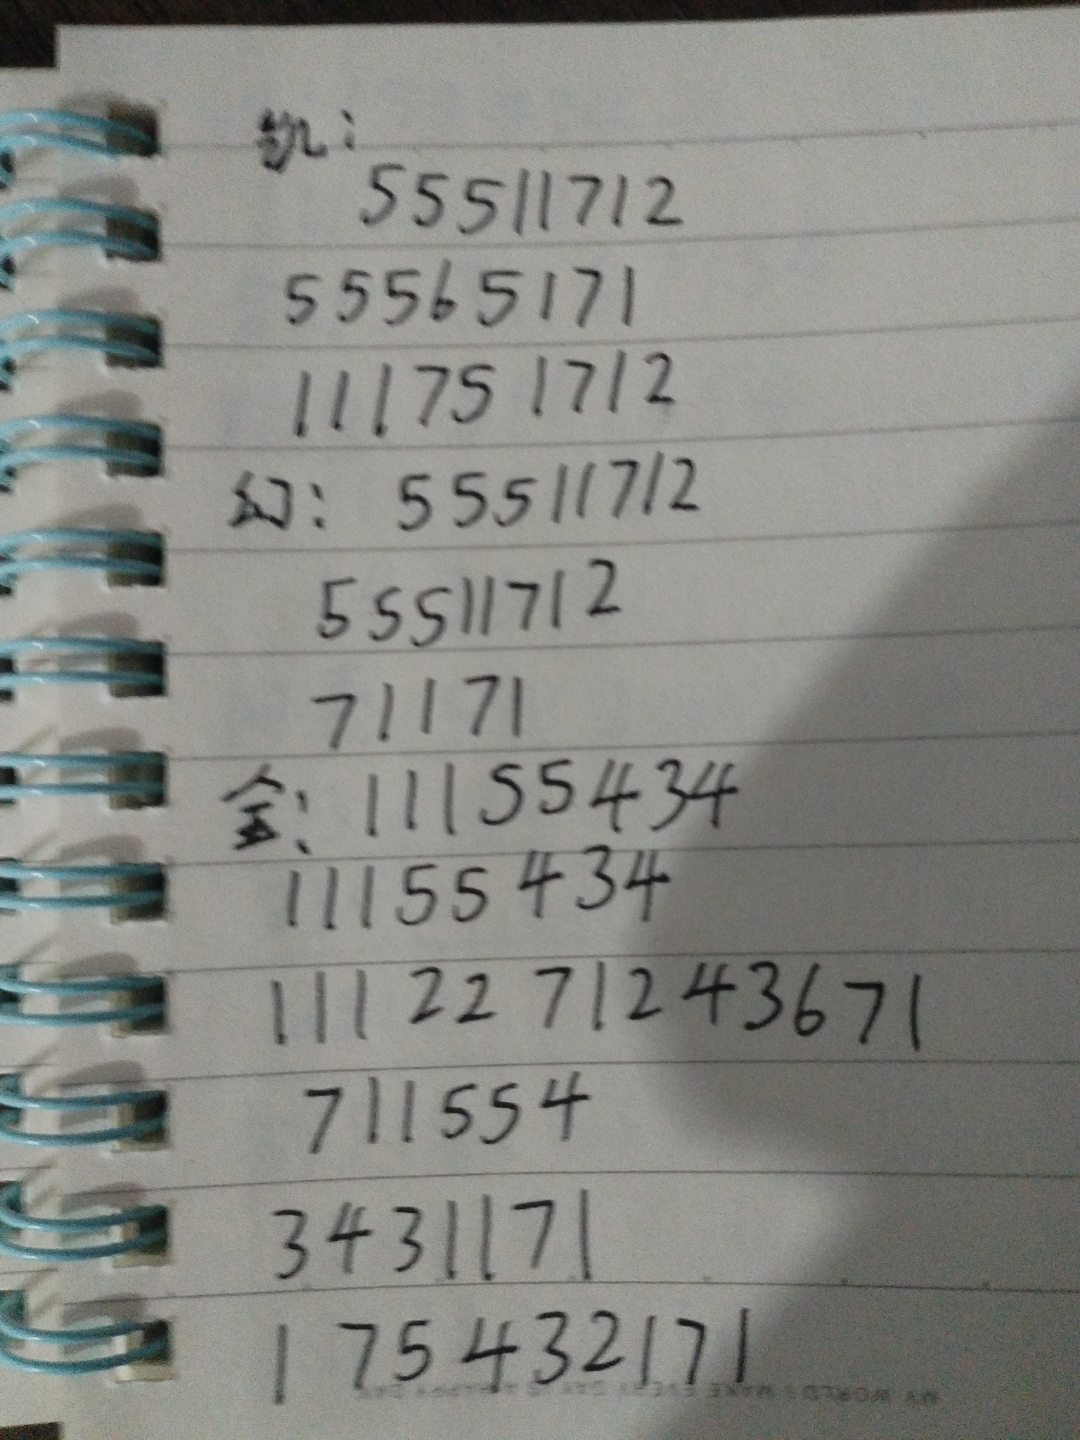 凯:
55511712
55565171
111751712
幻: 55511712
55511712
71171
金: 11155434
11155434
1112271243671
711554
3431171
175432171